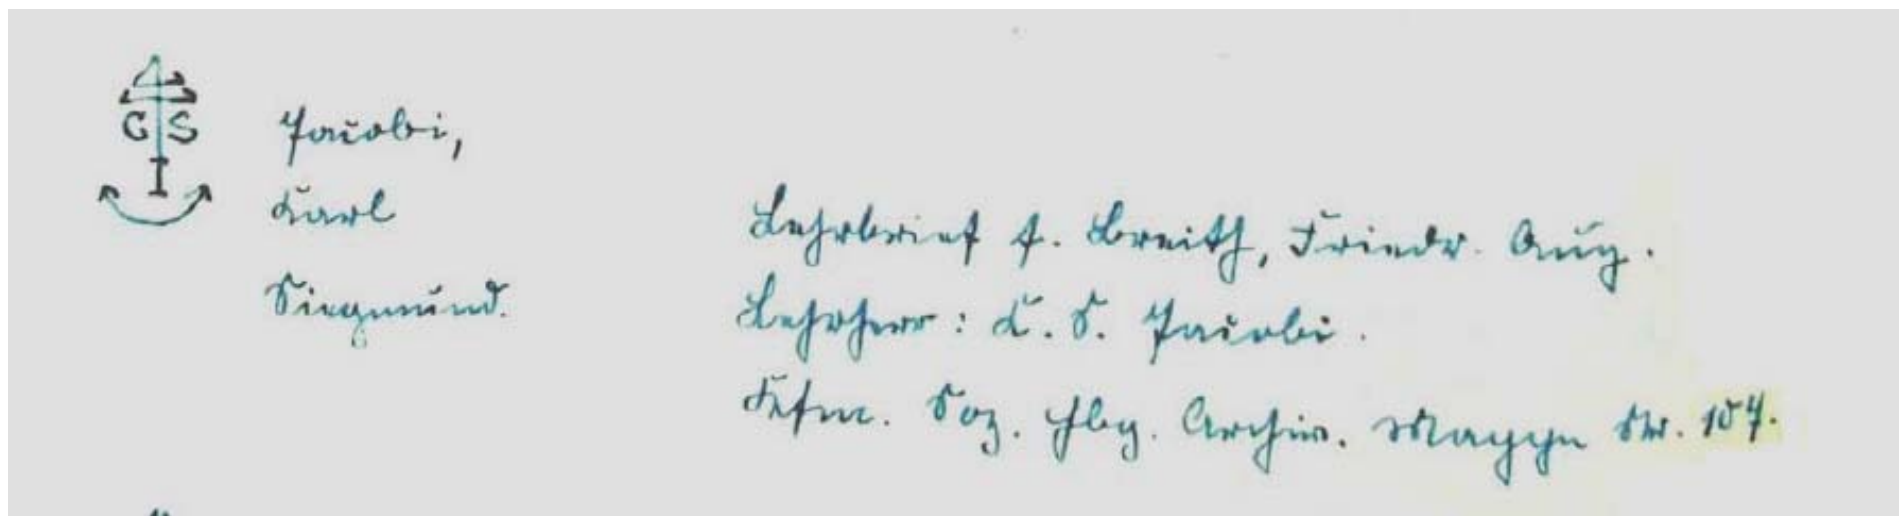 C S
I
Jacobi,
Karl
Siegmund.
Lehrbrief f. Breith, Friedr. Aug.
Lehrherr: K. S. Jacobi.
Kfm. Soz. Hbg. Archiv. Mappe Nr. 157.